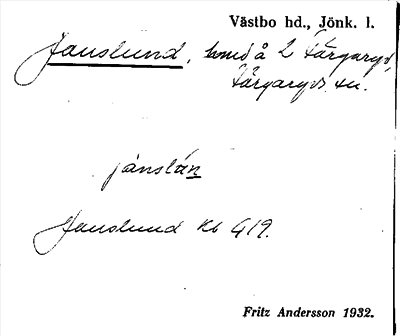 Västbo hd., Jönk. l.
Janslund, hmd å 2 Färgaryd,
Färgaryds sn.
jánslán
Janslund Kb 419.
Fritz Andersson 1932.